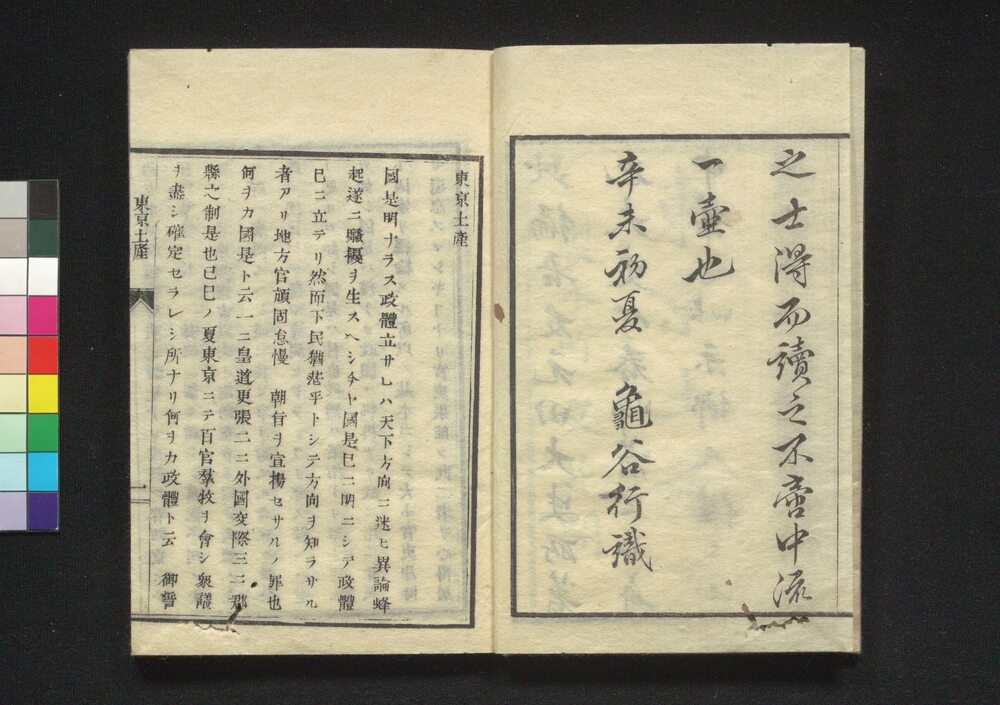 之士得而讀之不啻中流
一壷也
辛未初夏　龜谷行識
東京土産
國是明ナラス政體立サレハ天下方向ニ迷ヒ異論蜂
起遂ニ騷擾ヲ生スヘシ今ヤ國是已ニ明ニシテ政體
已ニ立テリ然而下民猶茫乎トシテ方向ヲ知ラサル
者アリ地方官頑固怠慢　朝旨ヲ宣揚セサルノ罪也
何ヲカ國是ト云一ニ皇道更張二ニ外國交際三ニ郡
縣之制是也己巳ノ夏東京ニテ百官羣牧ヲ會シ衆議
ヲ盡シ確定セラレシ所ナリ何ヲカ政體ト云　御誓
東京土産
一